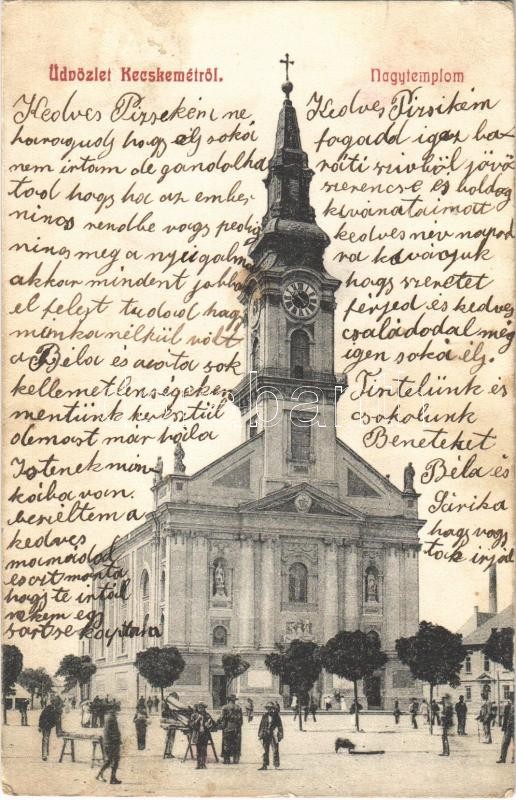 Üdvözlet Kecskemétről.
Nagytemplom
Kedves Pirsekém ne
haragudj hogy éjs soká
nem irtam de gandolha
tod hogy ha az ember
nincs rendbe vagy pedig
nincs meg a nyugalm
akkar mindent jobba
el felejt tudod hagy
munka nélkül vólt
a Béla és azota sok
kellemetlenségeken
mentünk keresztül
de most már hála
Istenek már
kóiba van.
beszéltem a
kedves
mamádal
és ezt monta
hagy te irtál
nekem egy
sart se kaptalu
Kedves Pirsikém
fagadd igaz ba
ráti szivböl jövö
szerencse és boldog
kivánataimatt
kedves nev napod
ra kivánjuk
hagy szeretet
férjed és kedves
családodal még
igen soká élj.
Tistelünk és
csokolunk
Beneteket
Béla és
Sárika
hagy vagy
tok irjál